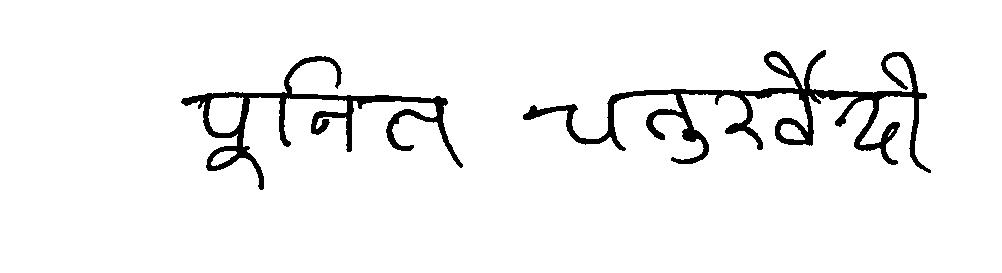 पूनित चतुरवैदी